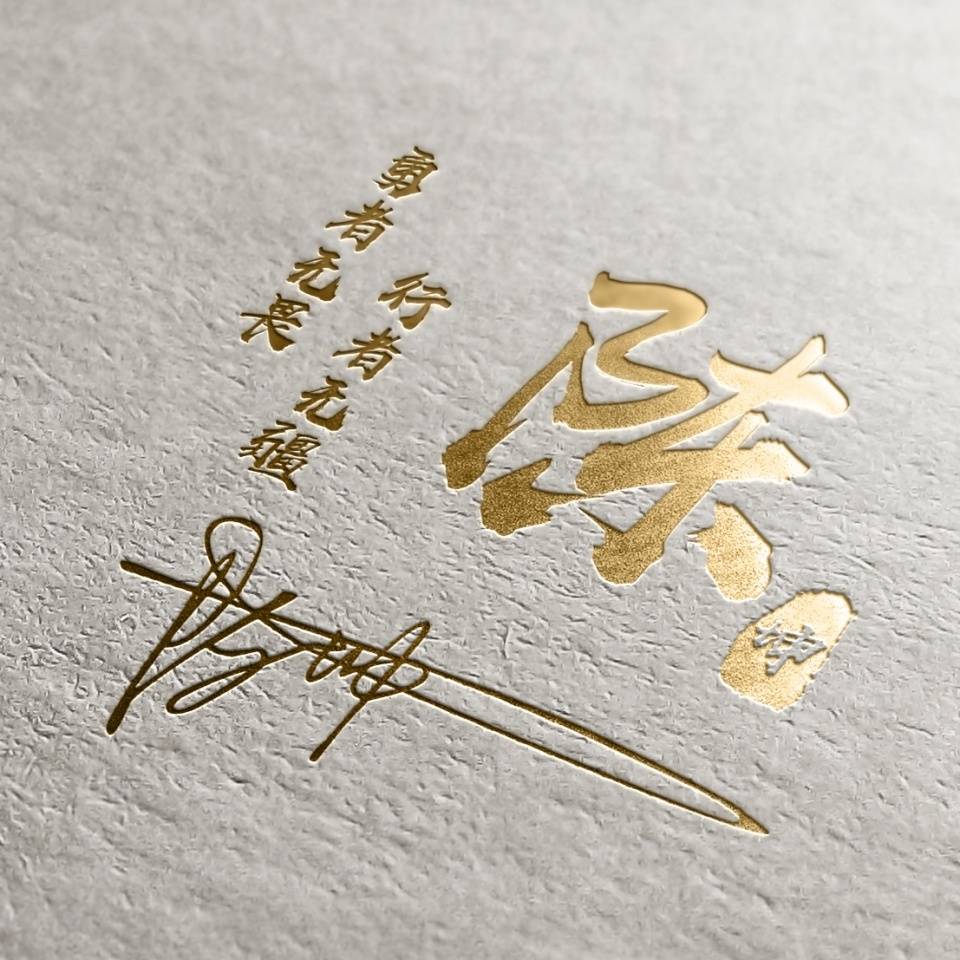 勇者无畏
行者无疆
陈
坤